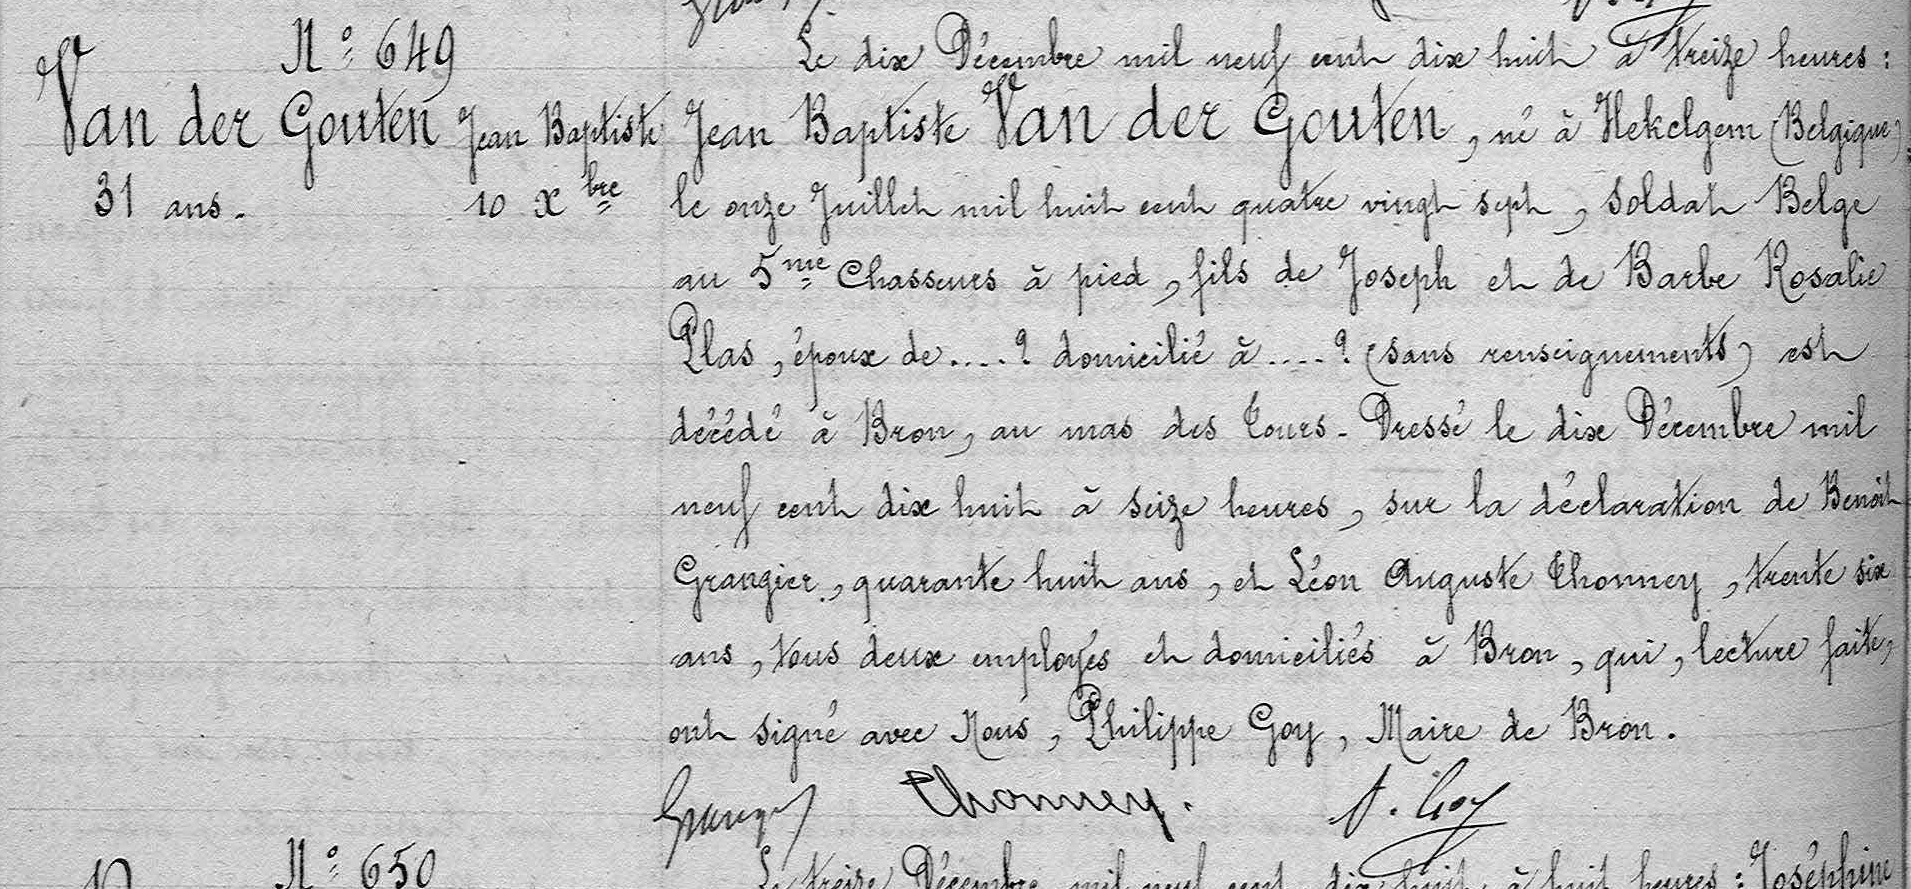 N° 649
Van der Gouten Jean Baptiste
31 ans. 10 Xbre
Le dix Décembre mil neuf cent dix huit à treize heures :
Jean Baptiste Van der Gouten, né à Hekelgem (Belgique)
le onze Juillet mil huit cent quatre vingt sept, soldat Belge
au 5me Chasseurs à pied, fils de Joseph et de Barbe Rosalie
Plas, époux de ....? domicilié à ....? (sans renseignements) est
décédé à Bron, au mas des Tours - Dressé le dix Décembre mil
neuf cent dix huit à seize heures, sur la déclaration de Benoît
Grangier, quarante huit ans, et Léon Auguste Thonney, trente six
ans, tous deux employés et domiciliés à Bron, qui, lecture faite,
ont signé avec Nous, Philippe Goy, Maire de Bron.
Thonney. P. Goy
N° 650
Le treize Décembre mil neuf cent dix huit à huit heures : Joséphine